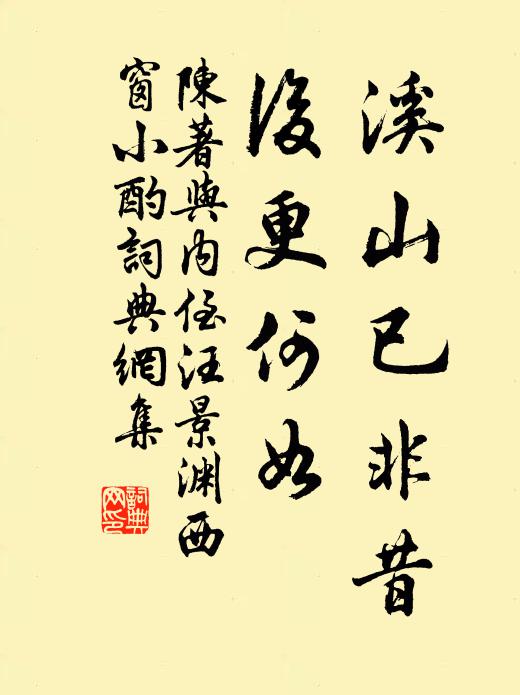 溪山已非昔
後更何如
陳著與內侄汪景淵西
窗小酌詞典網集
詞典
网印